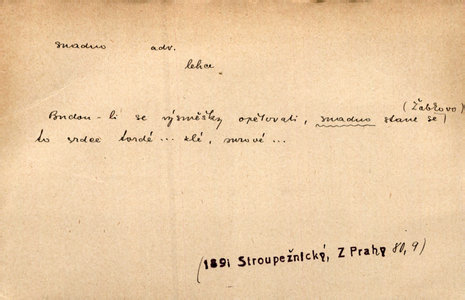 snadno adv.
lehce
(Žábkovo)
Budou-li se výsměšky opětovati, snadno stane se
to srdce tvrdé ... zlé, surové ...
(1891 Stroupežnický, Z Prahy 80, 9)